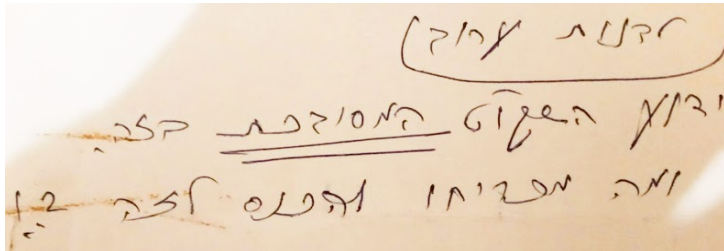 לבנות ערוב
ידוע השקו"ט המסובכת בזה,
ומה מכריחו להכנס לזה ?!